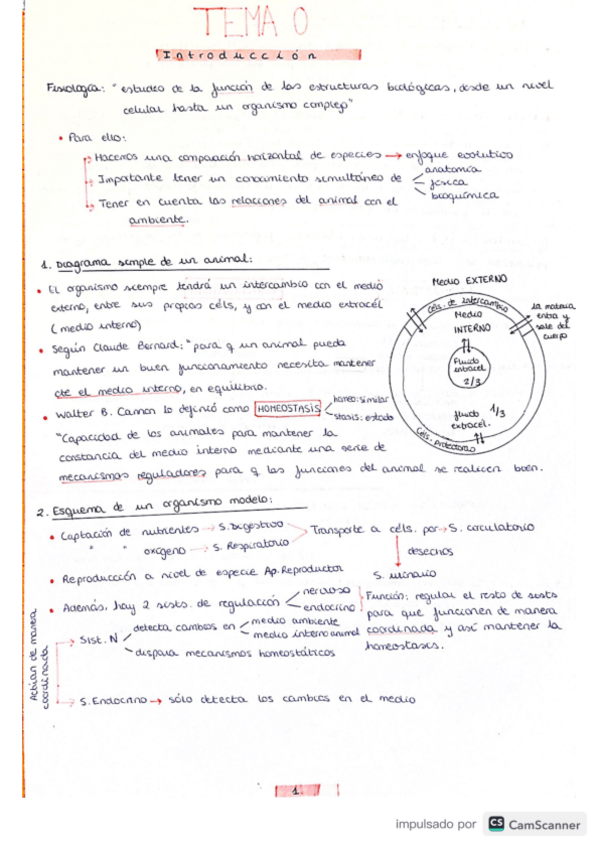 TEMA 0
Introducción
Fisiología: "estudio de la función de las estructuras biológicas, desde un nivel
celular hasta un organismo complejo"
• Para ello:
Hacemos una comparación horizontal de especies → enfoque evolutivo
Importante tener un conocimiento simultáneo de
anatomía
física
bioquímica
Tener en cuenta las relaciones del animal con el
ambiente.
1. Diagrama simple de un animal:
• El organismo siempre tendrá un intercambio con el medio
externo, entre sus propias céls, y con el medio extracél
(medio interno)
• Según Claude Bernard: "para q un animal pueda
mantener un buen funcionamiento necesita mantener
cte el medio interno, en equilibrio.
• Walter B. Cannon lo definió como HOMEOSTASIS
homeo: similar
stasis: estado
"Capacidad de los animales para mantener la
constancia del medio interno mediante una serie de
mecanismos reguladores para q las funciones del animal se realicen bien.
Medio EXTERNO
céls. de intercambio
Medio
INTERNO
Fluido
intracel
2/3
fluido 1/3
extracel.
Céls. protectoras
la materia
entra y
sale del
cuerpo
2. Esquema de un organismo modelo:
• Captación de nutrientes → S. Digestivo
" " oxígeno → S. Respiratorio
Transporte a céls. por → S. circulatorio
desechos
S. urinario
• Reproducción a nivel de especie Ap. Reproductor
• Además, hay 2 sists. de regulación
nervioso
endocrino
Función: regular el resto de sists
para que funcionen de manera
coordinada y así mantener la
homeostasis.
Actúan de manera
coordinada
Sist. N
detecta cambios en
medio ambiente
medio interno animal
dispara mecanismos homeostáticos
S. Endocrino → sólo detecta los cambios en el medio
1.
impulsado por CS CamScanner